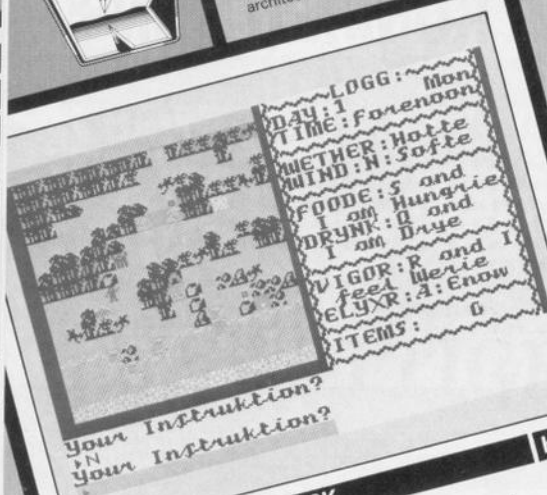 archite
LOGG:
DAY:1 Mon
TIME:Forenoon
WETHER:Hotte
WIND:N:Softe
FOODE:S and
I am Hungrie
DRYNK:Q and
I am Drye
VIGOR:R and I
feel Werie
ELYXR:A:Enow
ITEMS: 6
Your Instruktion?
▸N
Your Instruktion?
▸